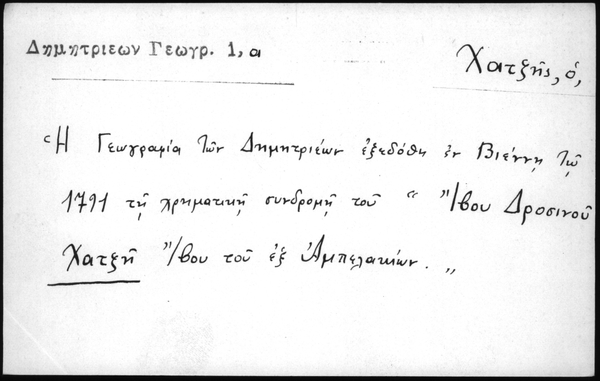 Δημητριεων Γεωγρ. 1, α
Χατζῆς, ὁ,
"Ἡ Γεωγραφία τῶν Δημητριέων ἐξεδόθη ἐν Βιέννῃ τῷ
1791 τῇ χρηματικῇ συνδρομῇ τοῦ " "/βου Δροσινοῦ
Χατζῆ "/βου τοῦ ἐξ Ἀμπελακίων. „